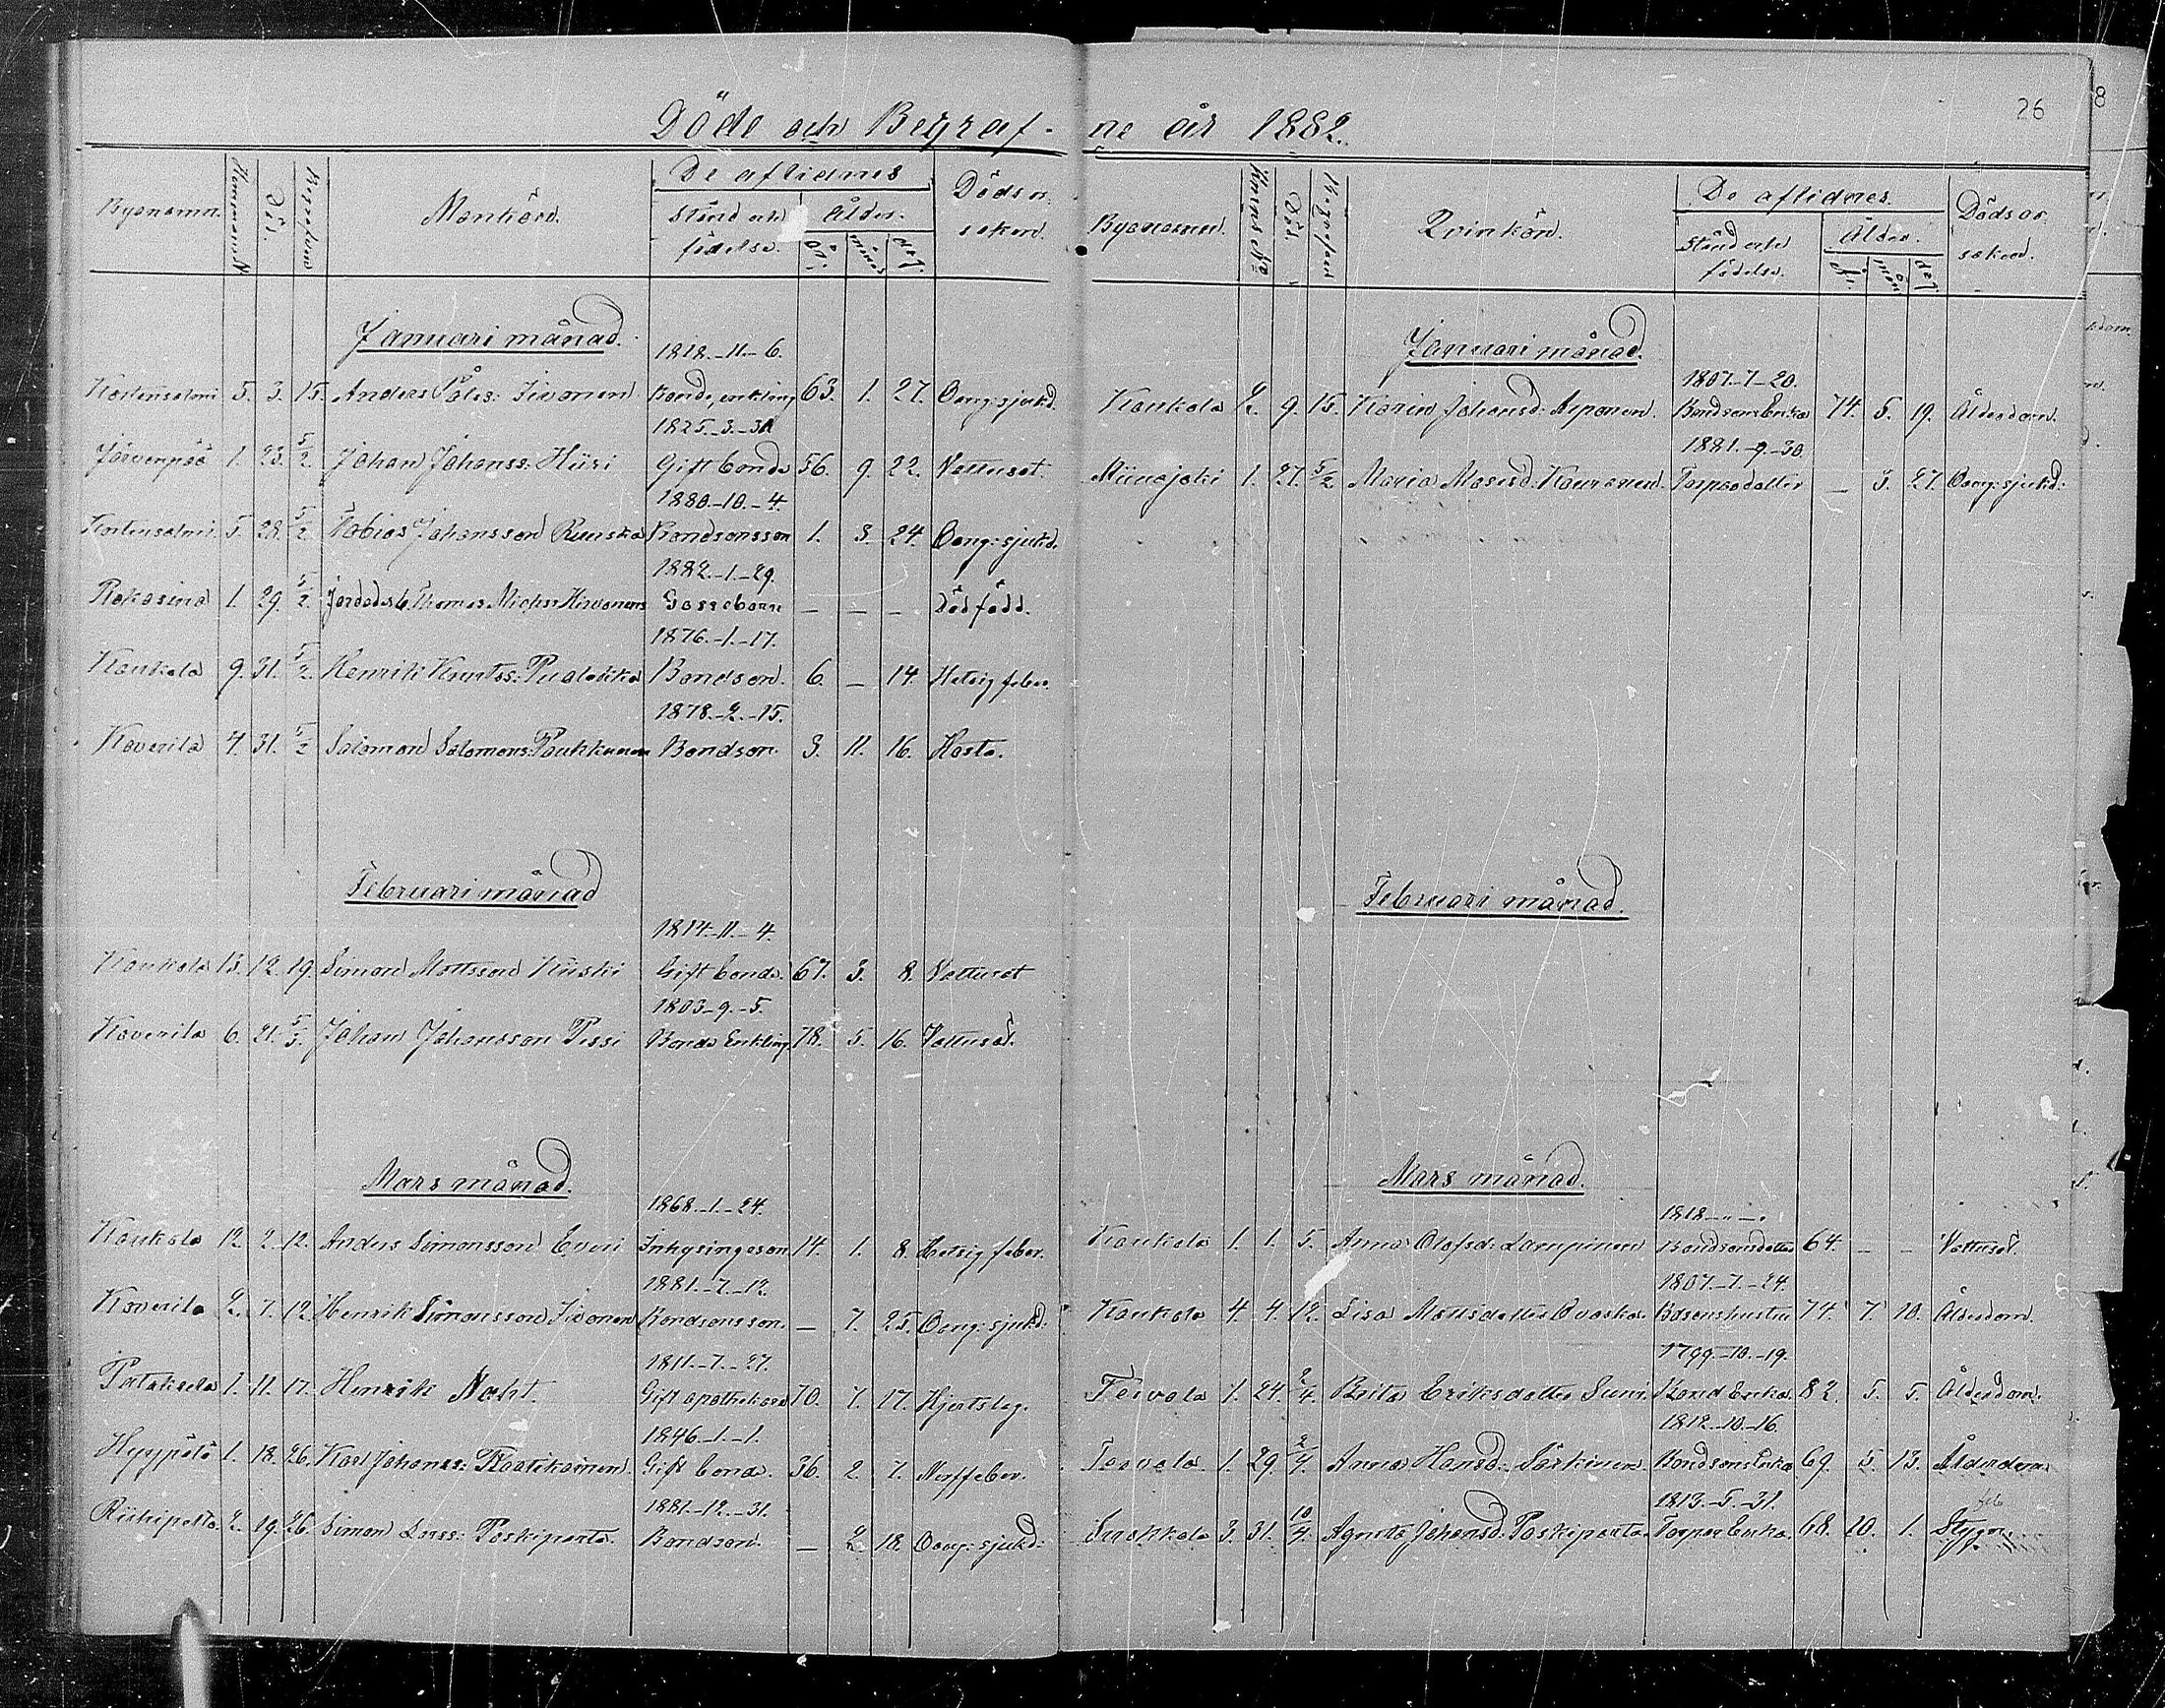 Döde och Begraf-ne år 1882.
26
8
Byanamn. Hemmans N Död. Begrafven Mankön. De aflidnes stånd och födelse. Ålder. år. månad dag. Dödsorsaken.
Januari månad.
1818.-11.-6.
Kortensalmi 5. 3. 15. Anders Påls: Iivonen Bonde, enkling 63. 1. 27. Oang: sjukd.
1825.-3.-31
Järvenpää 1. 23. 5/2. Johan Johanss: Hiiri Gift bonde 56. 9. 22. Vattusot.
1880.-10.-4.
Kortensalmi 5. 28. 5/2. Tobias Johansson Ruuska Bondsonsson 1. 3. 24. Oang: sjukd.
1882.-1.-29.
Rokosina 1. 29. 5/2. Thomas Michss Hirvonens Gossebarn — — — Dödfödd.
1876.-1.-17.
Kaukola 9. 31. 5/2. Henrik Knutss: Pualakka Bondson. 6. — 14. Hetsig feber.
1878.-2.-15.
Koverila 4. 31. 5/2 Salomon Salomons: Paukkunen Bondson. 3. 11. 16. Hosta.
Februari månad
1814.-11.-4.
Kaukola 13. 12. 19. Simon Mattsson Kiiski Gift bonde. 67. 3. 8. Vattusot
1803-9.-5.
Koverila 6. 21. 5/3. Johan Johansson Pessi Bonde Enkling 78. 5. 16. Vattusot.
Mars månad.
1868.-1.-24.
Kaukola 12. 2. 12. Anders Simonsson Everi Inhysingeson 14. 1. 8. Hetsig feber.
1881.-7.-12.
Koverila 2. 7. 12. Henrik Simonsson Iivonen Bondsonsson. — 7. 25. Oang: sjukd:
1811.-7.-27.
1. 11. 17. Henrik Gift apothekare 70. 7. 17. Hjertslag.
1846.-1.-1.
1. 18. 26. Karl Johanss: Raatikainen. Gift bonde. 36. 2. 7. Nerffeber.
1881.-12.-31.
2. 19. 26. Simon Larss: Paskiparta. Bondson. — 2. 18. Oang: sjukd:
Byanamn. Hemmans No Död. Begrafven Qvinkön. De aflidnes. Stånd och födelse. Ålder. år. mån dag Dödsorsaken.
Januari månad.
1807.-7.-20.
Kaukola 2. 9. 15. Karin Johansd: Arponen. Bondsons Enka 74. 5. 19. Ålderdom.
1881.-9.-30.
Miinajoki 1. 27. 5/2 Maria Mosesd: Kauranen. Torpardotter — 3. 27. Oang: sjukd:
Februari månad.
Mars månad.
1818-„-„
Kaukola 1. 1. 5. Anna Olofsd: Lampinen Bondsonsdotter 64. — — Vattusot.
1807.-7.-24.
Kaukola 4. 4. 12. Lisa Mattsdotter Ovaska. 74. 7. 10. Ålderdom.
1799.-10.-19.
Tervola 1. 24. 2/4. Brita Eriksdotter Suni. Bond Enka 82. 5. 5. Ålderdom.
1812.-10.-16.
Tervola 1. 29. 2/4. Anna Hansd: Särkinen. Bondsons Enka 69. 5. 13. Ålderdom
1813.-5.-31.
3. 31. 10/4. Agneta Johansd: Paskiparta. Torpar Enka. 68. 10. 1. Stygn.